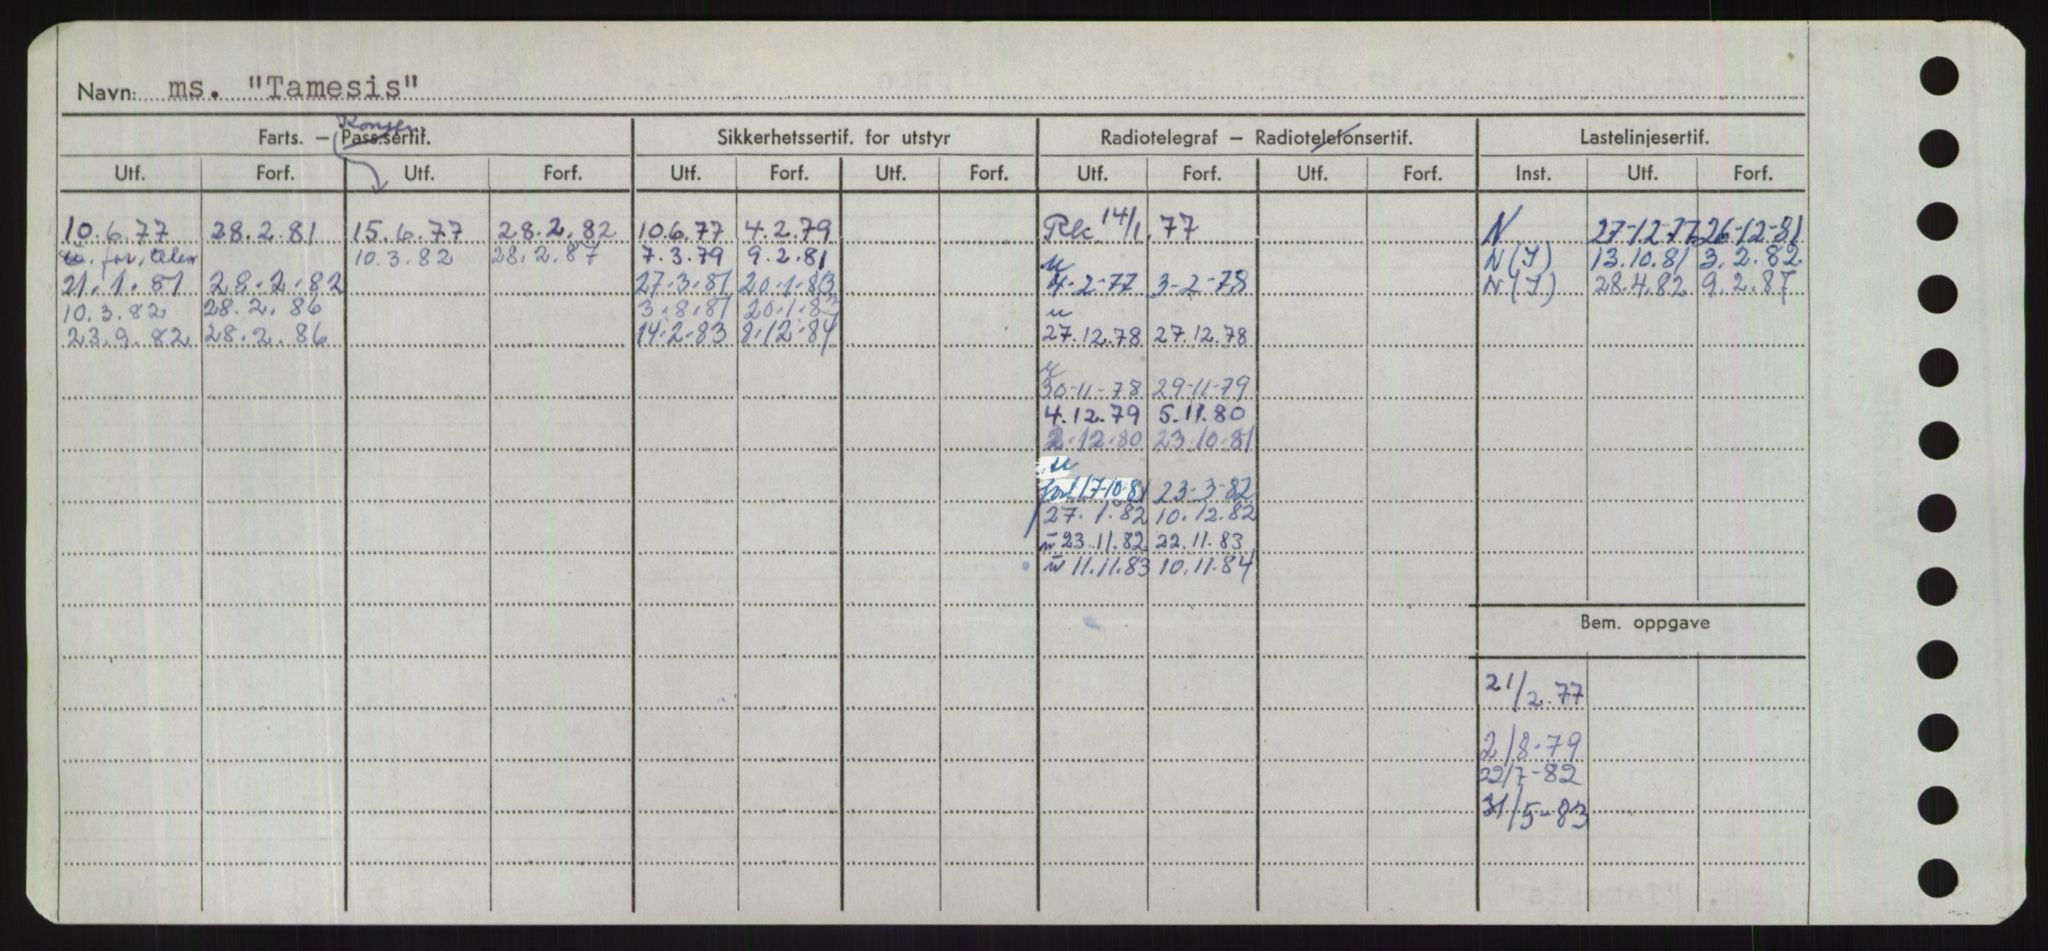 Navn: ms. "Tamesis"
Konstr.
Farts. — Pass.sertif. Sikkerhetssertif. for utstyr Radiotelegraf — Radiotelefonsertif. Lastelinjesertif.
Utf. Forf. Utf. Forf. Utf. Forf. Utf. Forf. Utf. Forf. Utf. Forf. Inst. Utf. Forf.
10.6.77 28.2.81 15.6.77 28.2.82 10.6.77 4.2.79 14/1.77 N 27-12-77 26-12-81
for telex 10.3.82 28.2.87 7.3.79 9.2.81 u N(I) 13.10.81 3.2.82
21.1.81 28.2.82 27.3.81 20.1.83 4-2-77 3-2-78 N(I) 28.4.82 9.2.87
10.3.82 28.2.86 3.8.81 20.1.83 u
23.9.82 28.2.86 14.2.83 8.12.84 27.12.78 27.12.78
u
30-11-78 29-11-79
4.12.79 5.11.80
2.12.80 23.10.81
u
forl 17-10-81 23-3-82
27.1.82 10.12.82
u 23.11.82 22.11.83
u 11.11.83 10.11.84
Bem. oppgave
21/2.77
2/8-79
22/7-82
31/5-83